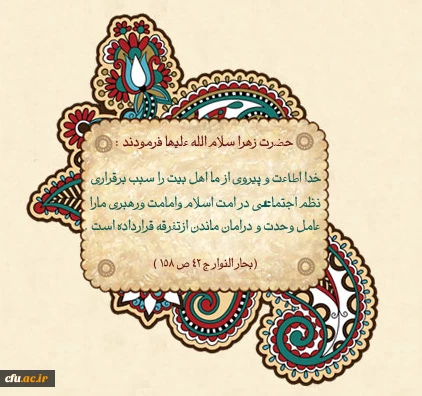 حضرت زهرا سلام الله علیها فرمودند :
خدا اطاعت و پیروی از ما اهل بیت را سبب برقراری
نظم اجتماعی در امت اسلام وامامت ورهبری مارا
عامل وحدت و درامان ماندن ازتفرقه قرارداده است
(بحار النوار ج ٤٢ ص ١٥٨ )
cfu.ac.ir